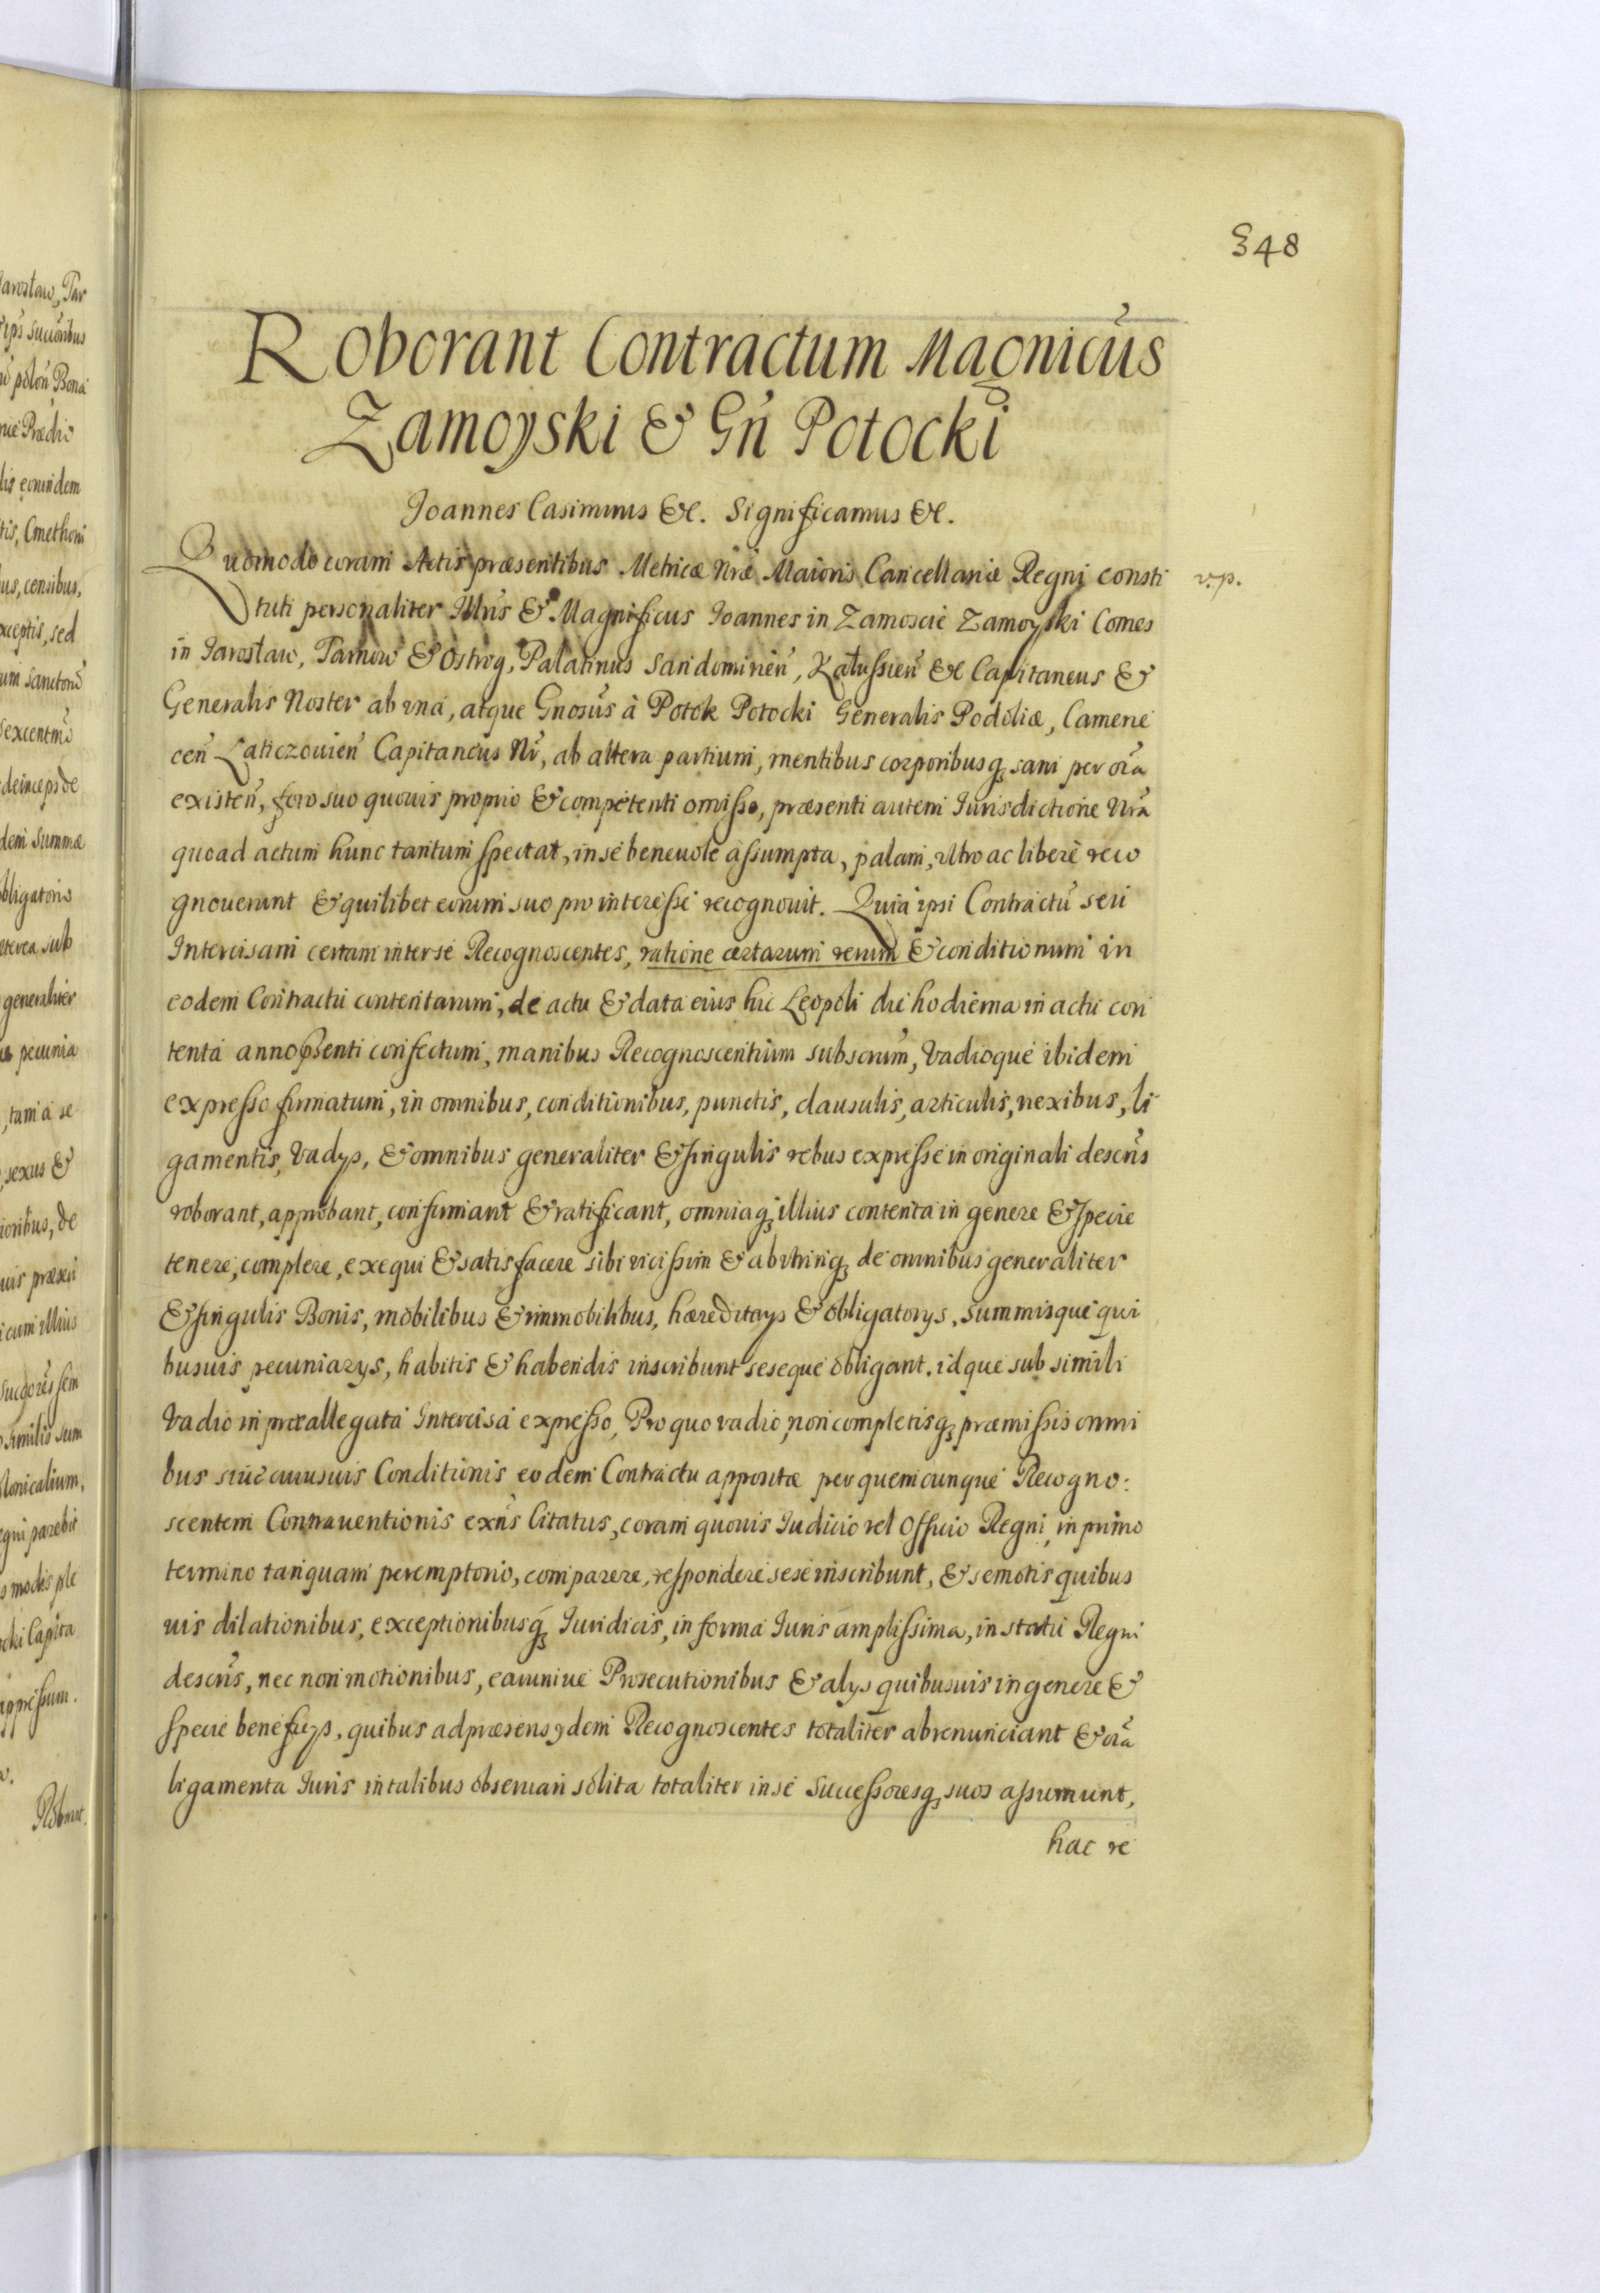 348
Roborant Contractum Magnicus
Zamoyski & Gn Potocki
Joannes Casimirus &c. Significamus &c.
Quomodo coram Actis præsentibus Metricæ Nræ Maioris Cancellariæ Regni consti
v.p.
tuti personaliter Illris & Magnificus Joannes in Zamoscie Zamoyski Comes
in Jarosław, Tarnow & Ostrog, Palatinus Sandomirien, Kałussien &c Capitaneus &
Generalis Noster ab vna, atque Gnosus à Potok Potocki Generalis Podoliæ, Camene
cen Laticzouien Capitaneus Nr, ab altera partium, mentibus corporibusq sani per oia
existen, foro suo quouis proprio & competenti omisso, præsenti autem Jurisdictione Nra
quoad actum hunc tantum spectat, in se beneuole assumpta, palam, vltro ac libere reco
gnouerunt & quilibet eorum suo pro interesse recognouit. Quia ipsi Contractu seu
Intercisam certam inter se Recognoscentes, ratione certarum rerum & conditionum in
eodem Contractu contentarum, de actu & data eius hic Leopoli die hodierna in actu con
tenta anno psenti confectum, manibus Recognoscentium subscrium, Vadioque ibidem
expresso firmatum, in omnibus, conditionibus, punctis, clausulis, articulis, nexibus, li
gamentis, Vadys, & omnibus generaliter & singulis rebus expresse in originali descris
roborant, approbant, confirmant & ratificant, omniaq illius contenta in genere & specie
tenere, complere, exequi & satisfacere sibi vicissim & abvtrinq de omnibus generaliter
& singulis Bonis, mobilibus & immobilibus, hæreditays & obligatorys, summisque qui
busuis pecuniarys, habitis & habendis inscribunt seseque obligant. idque sub simili
Vadio in præallegata Intercisa expresso, Pro quo vadio, non completisq præmissis omni
bus siue cuiusuis Conditionis eodem Contractu appositæ per quemcunque Recogno:
scentem Contrauentionis exns Citatus, coram quouis Judicio vel Officio Regni, in primo
termino tanquam peremptorio, comparere, respondere sese inscribunt, & semotis quibus
uis dilationibus, exceptionibusq Juridicis, in forma Juris amplissima, in statu Regni
descris, nec non motionibus, earumue Prosecutionibus & alys quibusuis in genere &
specie beneficys, quibus ad præsens ydem Recognoscentes totaliter abrenunciant & oia
ligamenta Juris in talibus obseruari solita totaliter in se Successoresq suos assumunt,
hac re